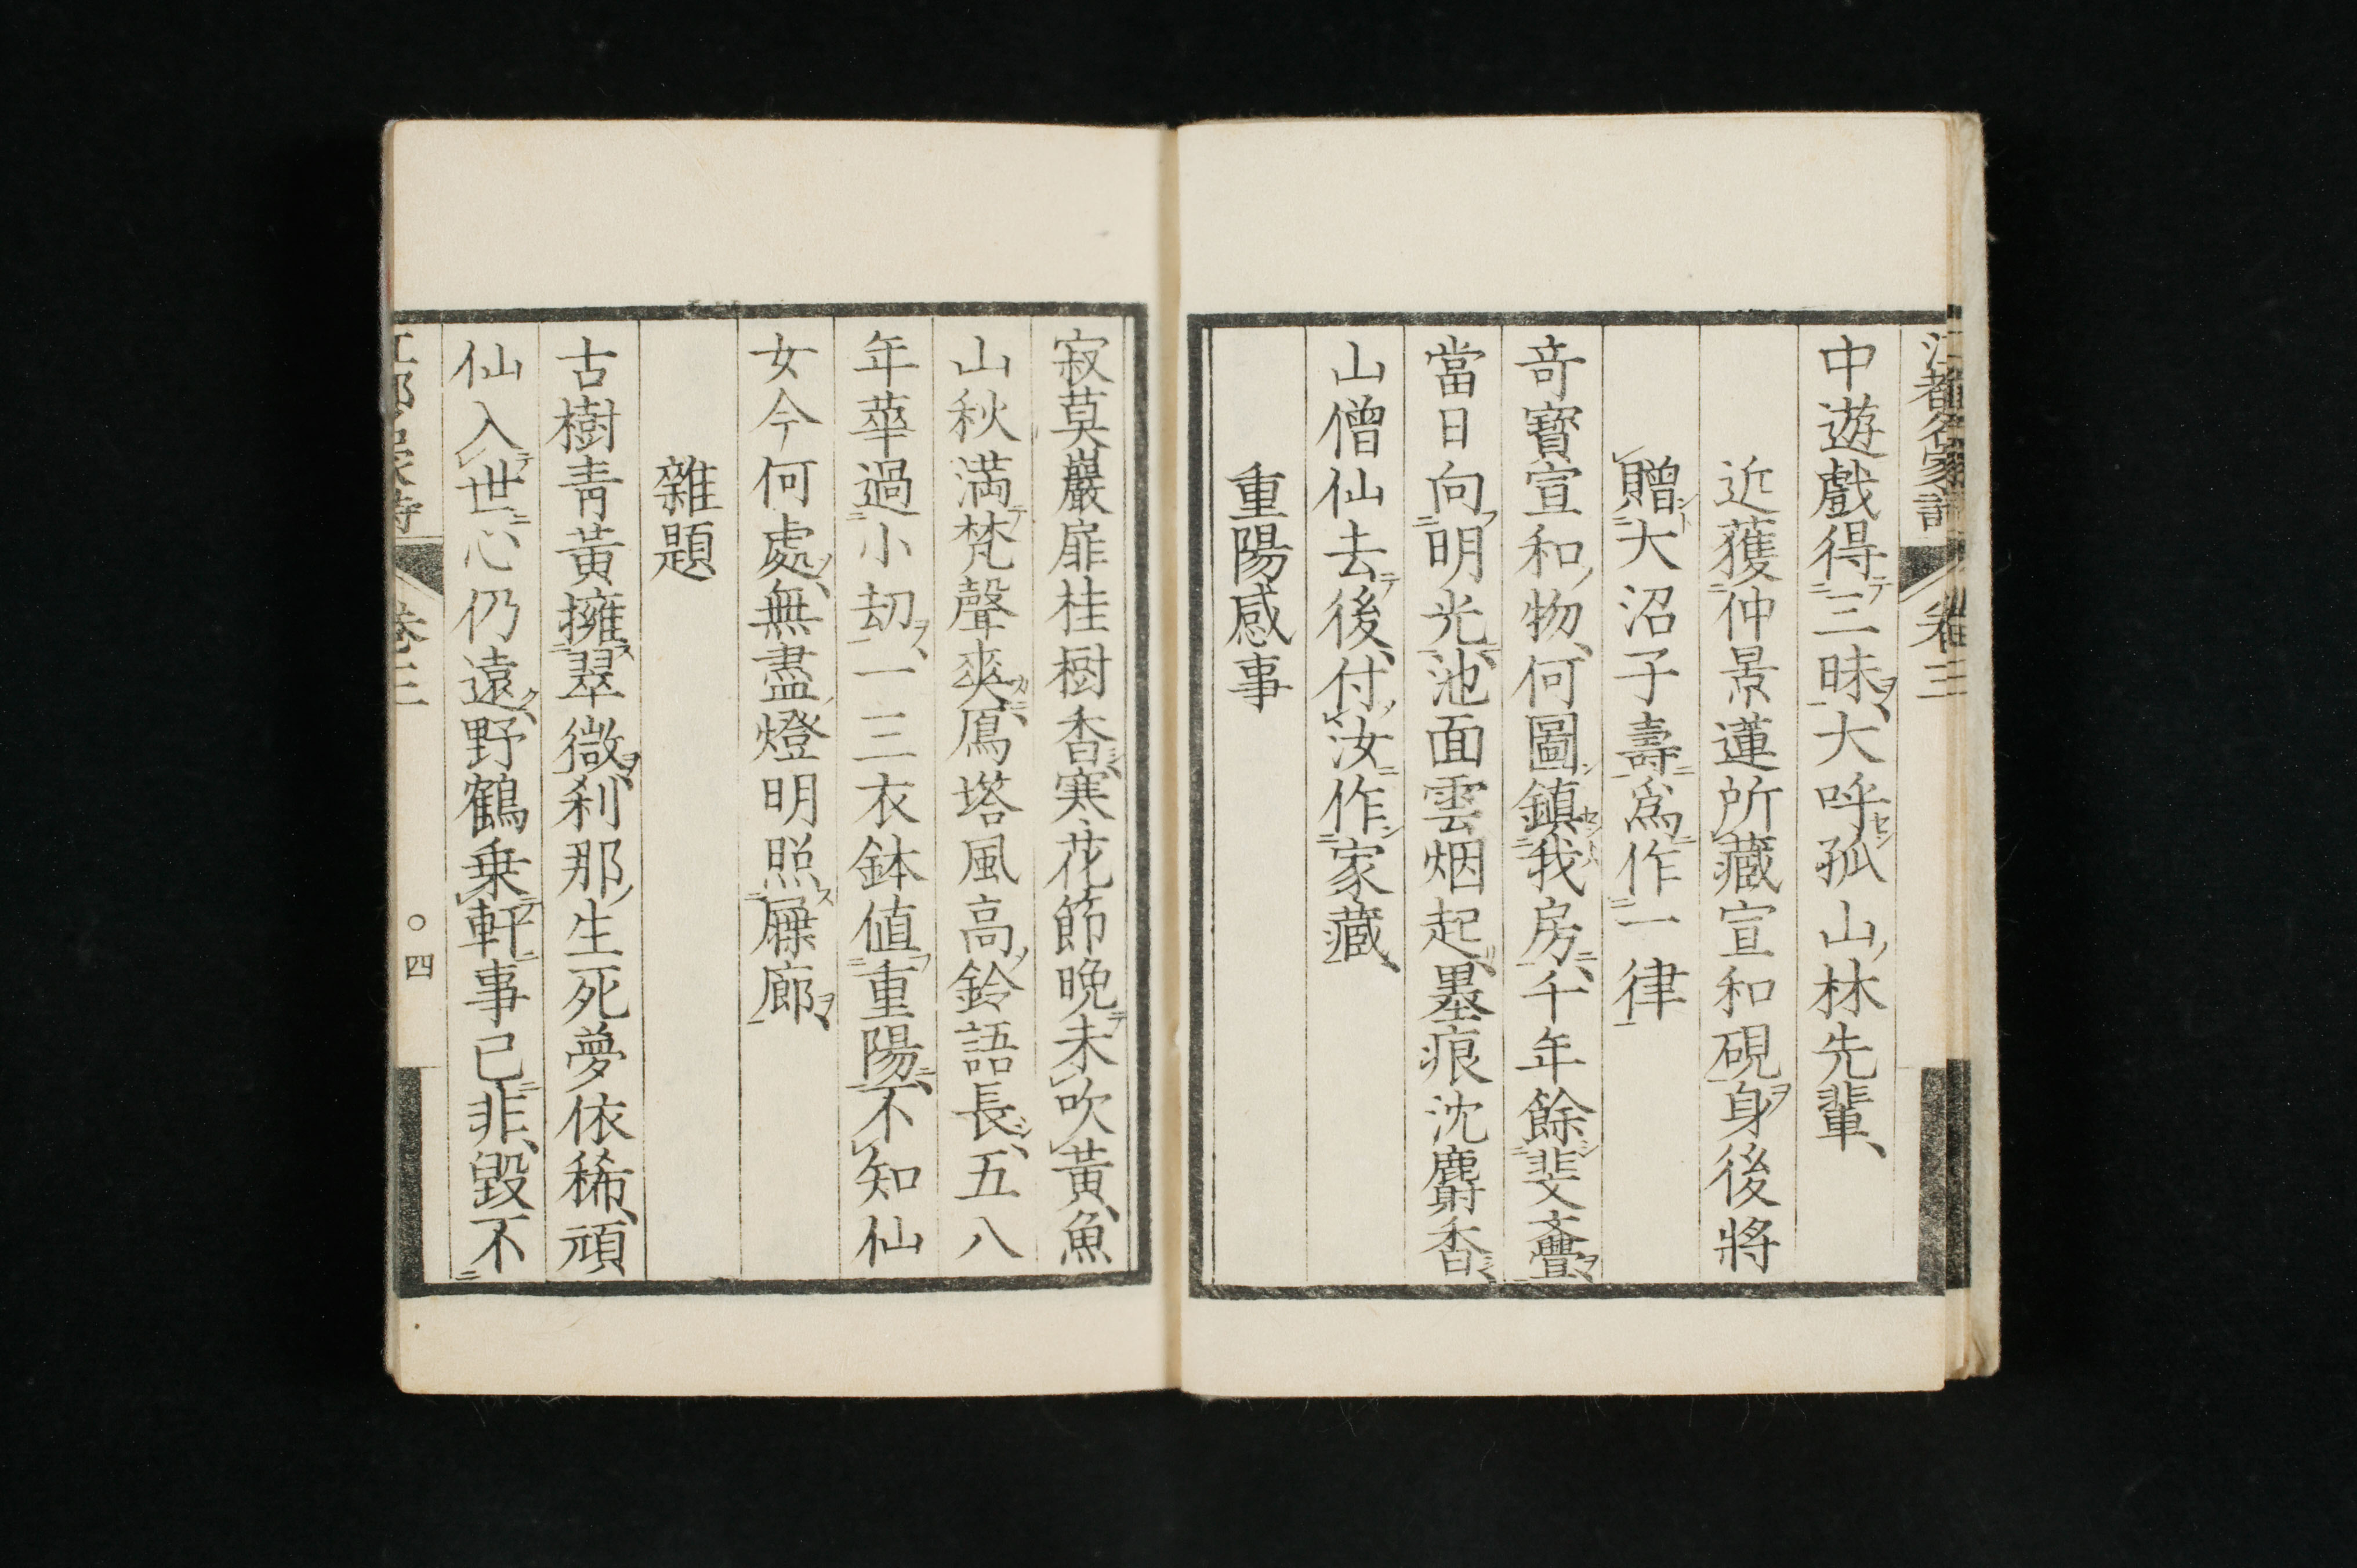 江都名家詩 卷三
中遊戲得三昧、大呼孤山林先輩、
近獲仲景蓮所藏宣和硯身後將
贈大沼子壽爲作一律
奇寶宣和物、何圖鎮我房、千年餘斐亹、
當日向明光、池面雲烟起、墨痕沈麝香、
山僧仙去後、付汝作家藏、
重陽感事
寂莫巖扉桂樹香、寒花節晩未吹黃、魚
山秋満梵聲爽、鳫塔風高鈴語長、五八
年華過小劫、一三衣鉢値重陽、不知仙
女今何處、無盡燈明照屧廊、
雜題
古樹青黃擁翠微、刹那生死夢依稀、頑
仙入世心仍遠、野鶴乗軒事已非、毀不
卷三 〇四